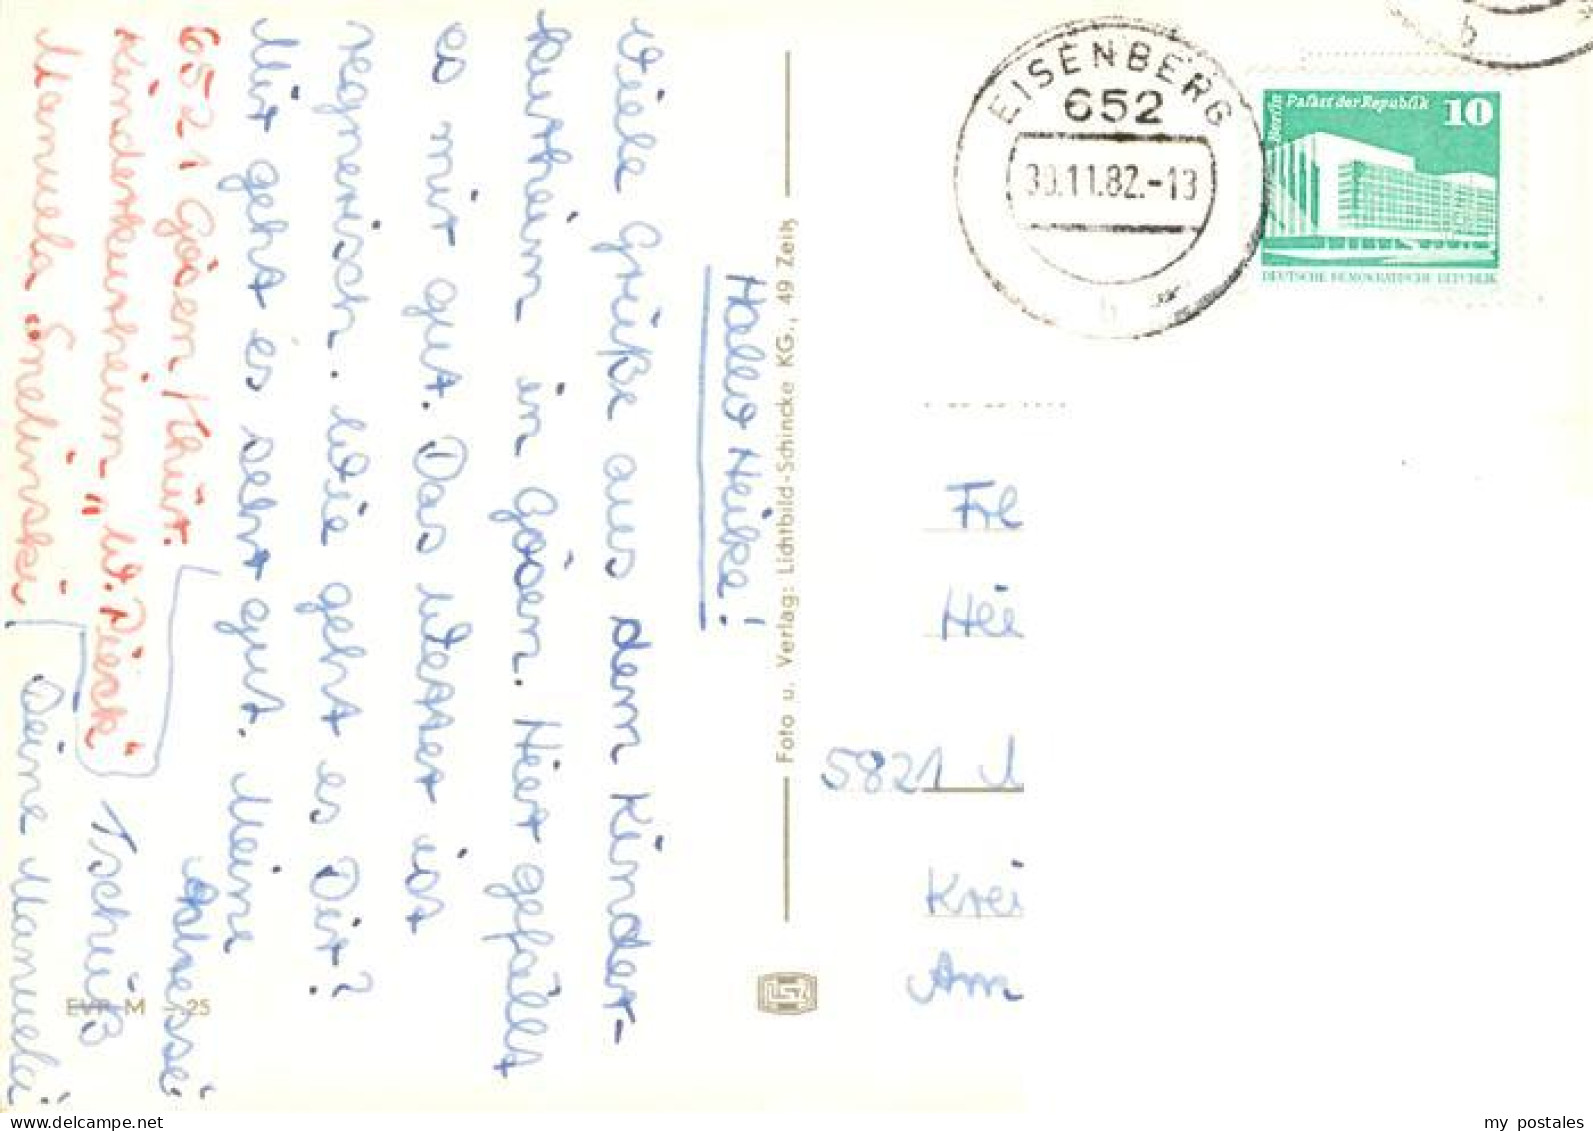 Hallo Heike!
Viele Grüße aus dem Kinder-
kurheim in Gösen. Hier gefällt
es mir gut. Das Wetter ist
regnerisch. Wie geht es Dir?
Mir geht es sehr gut. Meine
Adresse:
6521 Gösen/Thür.
Kinderkurheim „W. Pieck“
Manuela Smelinski
Tschüß
Deine Manuela
Foto u. Verlag: Lichtbild-Schincke KG., 49 Zeitz
EVP M -.25
EISENBERG
652
30.11.82.-13
b
b
Berlin Palast der Republik 10
DEUTSCHE DEMOKRATISCHE REPUBLIK
Frl
Hei
5821
Krei
Am
my postales